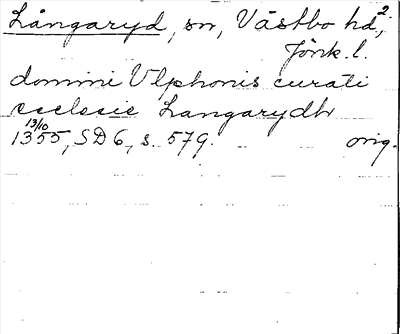 Långaryd, sn, Västbo hd,²
Jönk. l.
domini Ulphonis curati
ecclesie Langarydh
13/10
1355, SD 6, s. 579. orig.